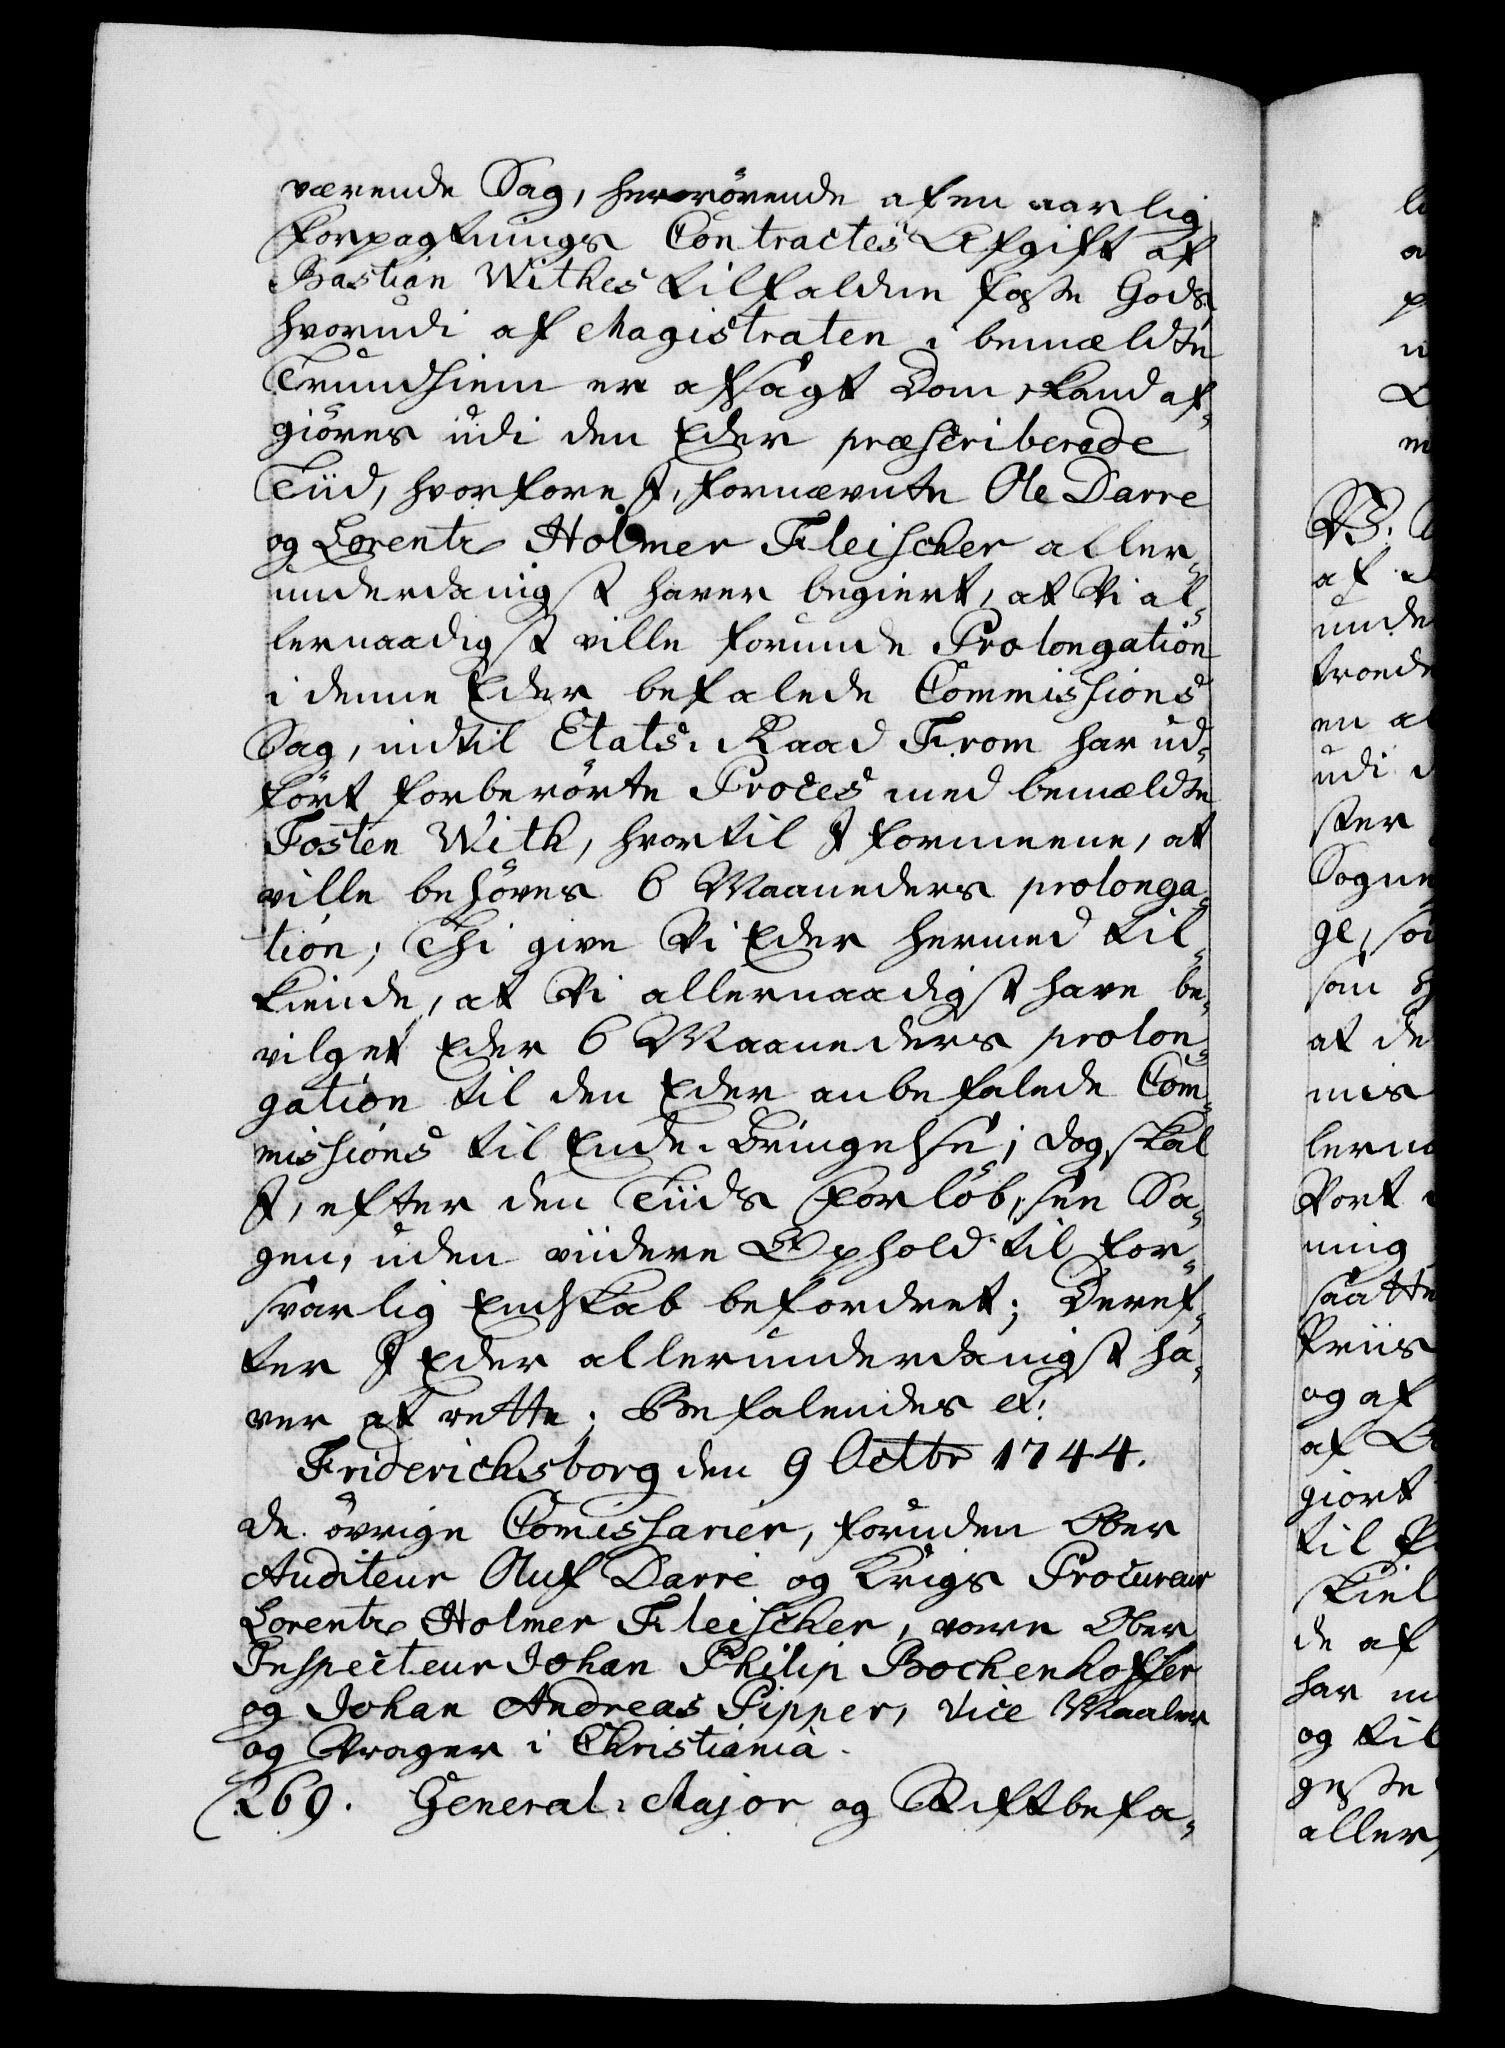 værende Sag, herrörende af en aarlig
Forpagtnings Contractes Afgift af
Bastian Withes tilfaldne feste Gods,
hvorudi af Magistraten i bemældte
Trundhiem er afsagt Dom, kand af-
giöres udi den Eder præscriberede
Tiid, hvorfore I, fornævnte Ole Darre
og Lorentz Holmer Fleischer aller-
underdanigst haver begiert, at Vi al-
lernaadigst ville forunde Prolongation
i denne Eder befalede Commissions
Sag, indtil Etats-Raad From har ud-
fört forberörte Proces med bemældte
Fosten With, hvortil I formeene, at
ville behöves 6 Maaneders prolonga-
tion; Thi give Vi Eder hermed til-
kiende, at Vi allernaadigst have be-
vilget Eder 6 Maaneders prolon-
gation til den Eder anbefalede Com-
missions til Ende-Bringelse; dog skal
I, efter den Tiids Forlöb, see Sa-
gen, uden viidere Ophold til for-
svarlig Endskab befordret; Deref-
ter I Eder allerunderdanigst ha-
ver at rette; Befalendes etc:
Friderichsborg den 9 Octbr 1744.
De övrige Comissarier, foruden Ober
Auditeur Oluf Darre og Krigs Procureur
Lorentz Holmer Fleischer, vare Ober
Inspecteur Johan Philip Bochenhoffer
og Johan Andreas Pipper, Vice Maaler
og Vrager i Christiania.
269. General-Major og Stiftbefa-